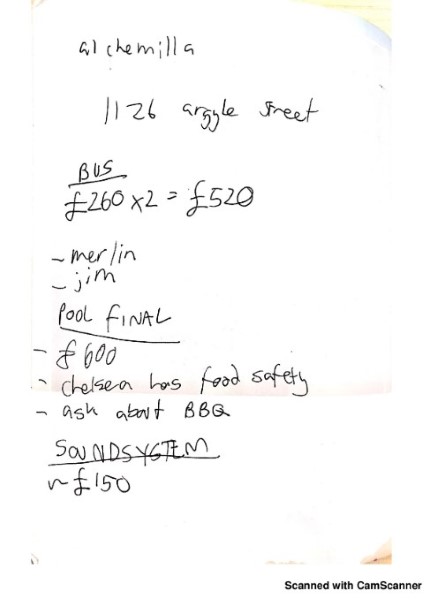 alchemilla
1126 argyle street
BUS
£260 x 2 = £520
- merlin
- jim
POOL FINAL
- £600
- chelsea has food safety
- ask about BBQ
SOUNDSYSTEM
~ £150
Scanned with CamScanner